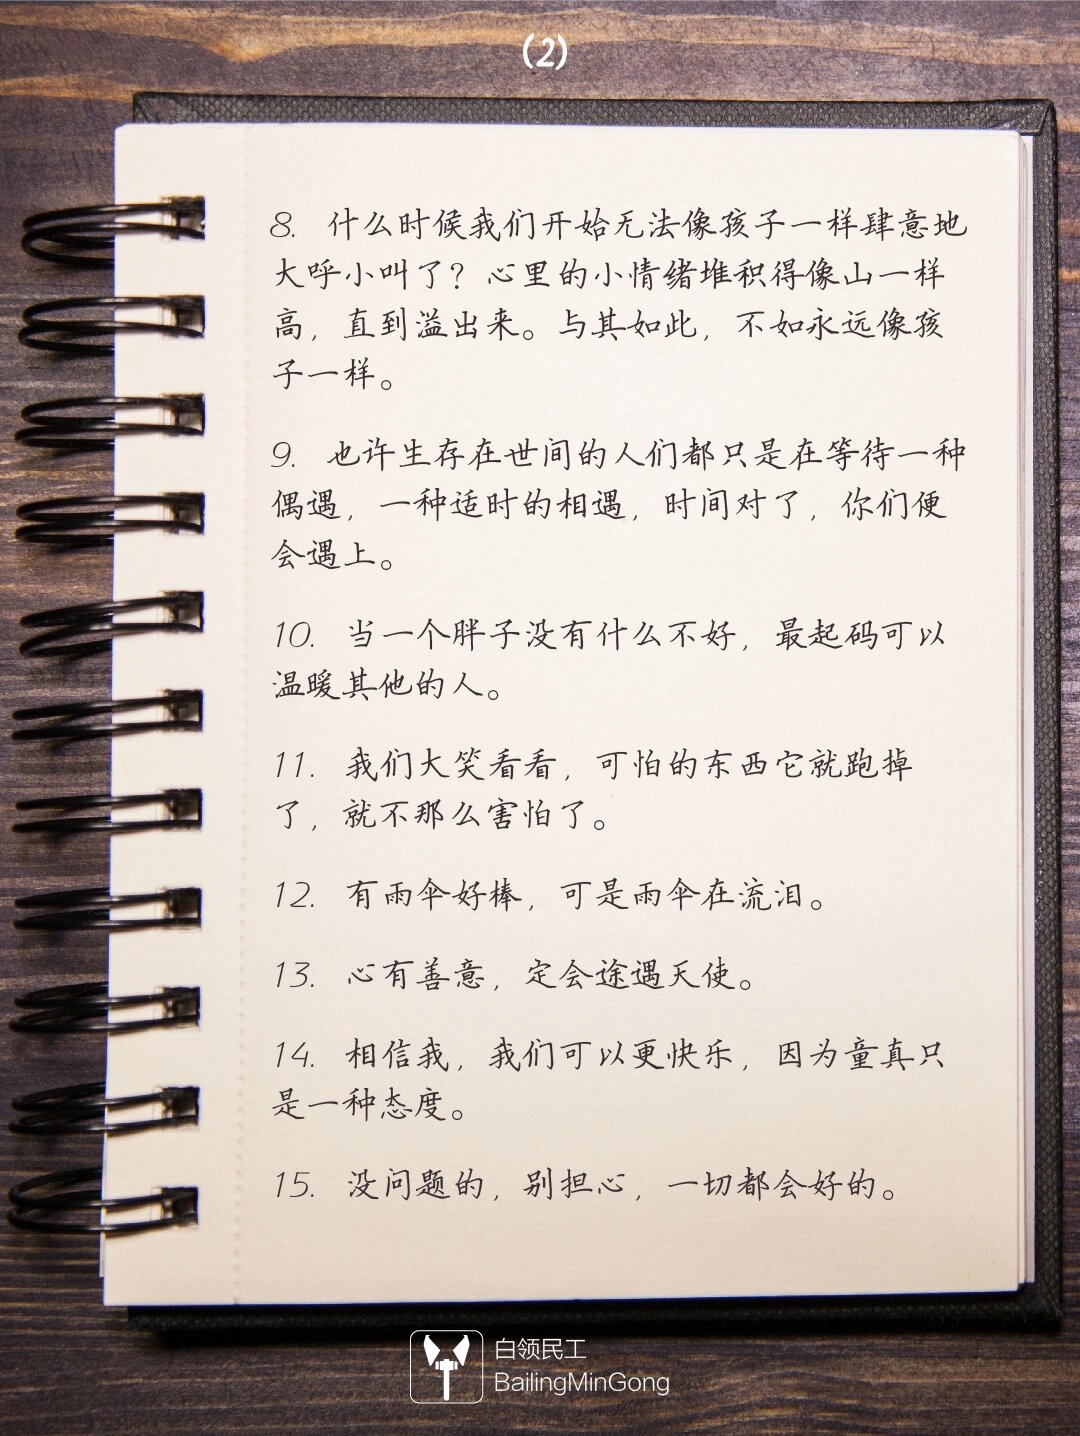 (2)
8. 什么时候我们开始无法像孩子一样肆意地
大呼小叫了？心里的小情绪堆积得像山一样
高，直到溢出来。与其如此，不如永远像孩
子一样。
9. 也许生存在世间的人们都只是在等待一种
偶遇，一种适时的相遇，时间对了，你们便
会遇上。
10. 当一个胖子没有什么不好，最起码可以
温暖其他的人。
11. 我们大笑看看，可怕的东西它就跑掉
了，就不那么害怕了。
12. 有雨伞好棒，可是雨伞在流泪。
13. 心有善意，定会途遇天使。
14. 相信我，我们可以更快乐，因为童真只
是一种态度。
15. 没问题的，别担心，一切都会好的。
白领民工
BailingMinGong